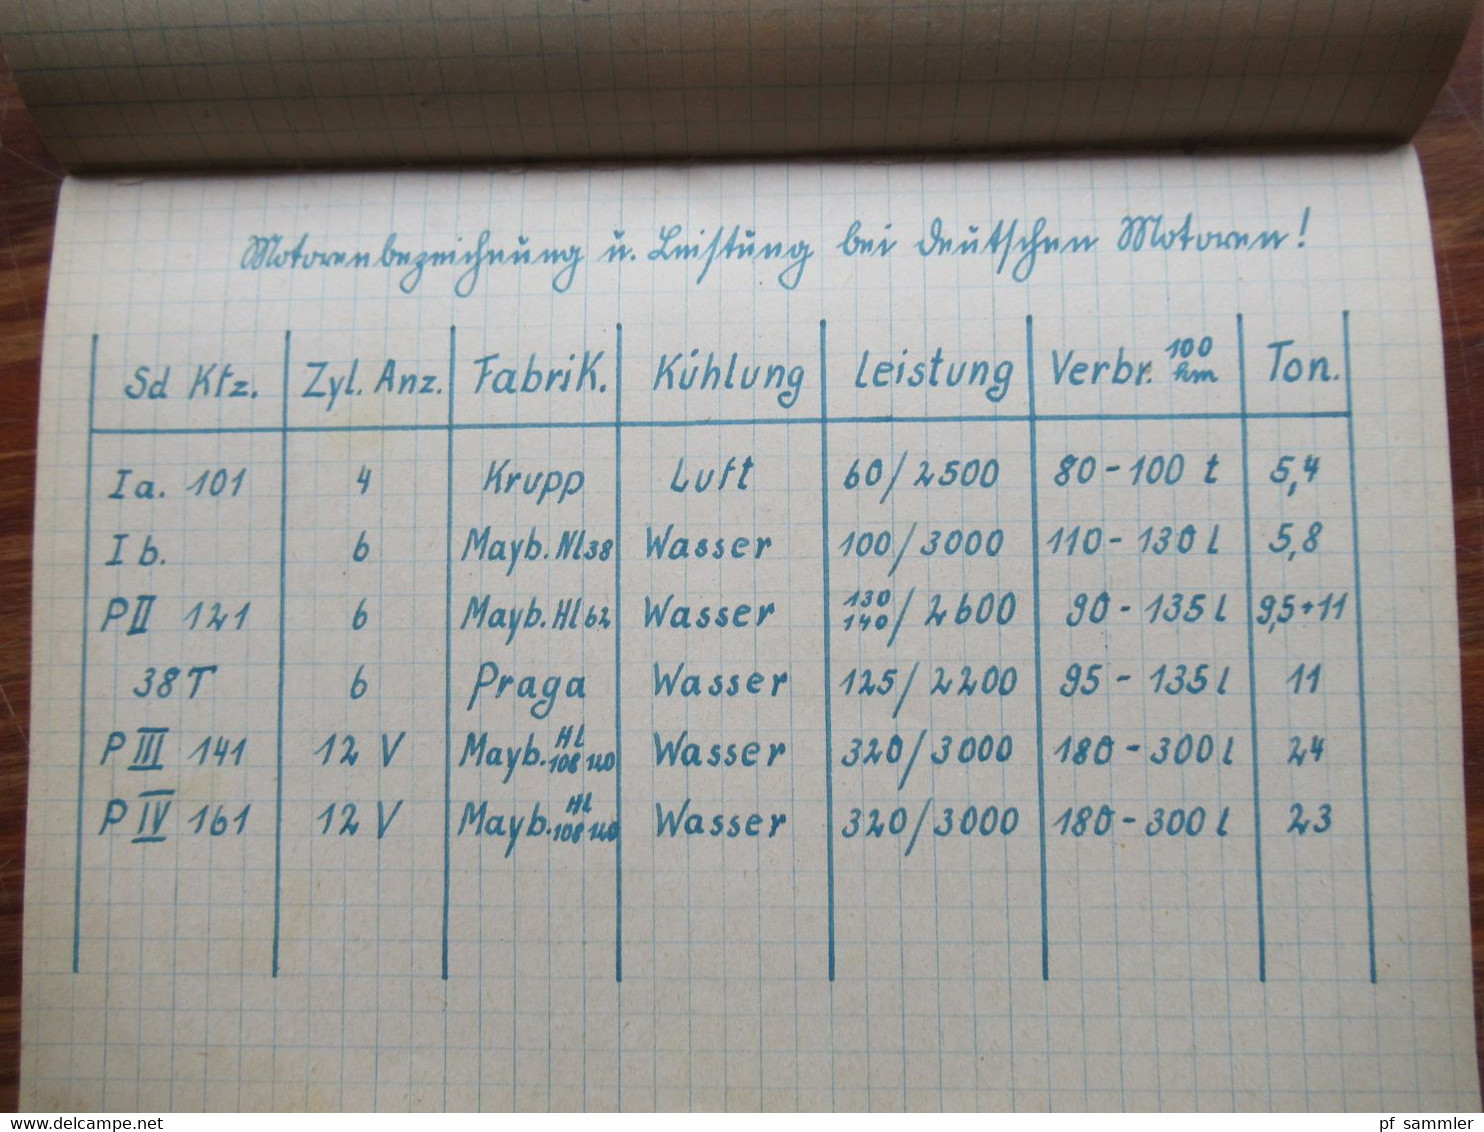 Motorenbezeichnung u. Leistung bei deutschen Motoren!
Sd Kfz. Zyl. Anz. Fabrik. Kühlung Leistung Verbr. 100 km Ton.
Ia. 101 4 Krupp Luft 60/2500 80-100 l 5,4
Ib. 6 Mayb. Nl38 Wasser 100/3000 110-130 l 5,8
PII 121 6 Mayb. Hl62 Wasser 130 140/2600 90-135 l 9,5+11
38T 6 Praga Wasser 125/2200 95-135 l 11
P III 141 12 V Mayb. Hl 108 120 Wasser 320/3000 180-300 l 24
P IV 161 12 V Mayb. Hl 108 120 Wasser 320/3000 180-300 l 23
www.delcampe.net
pf_sammler